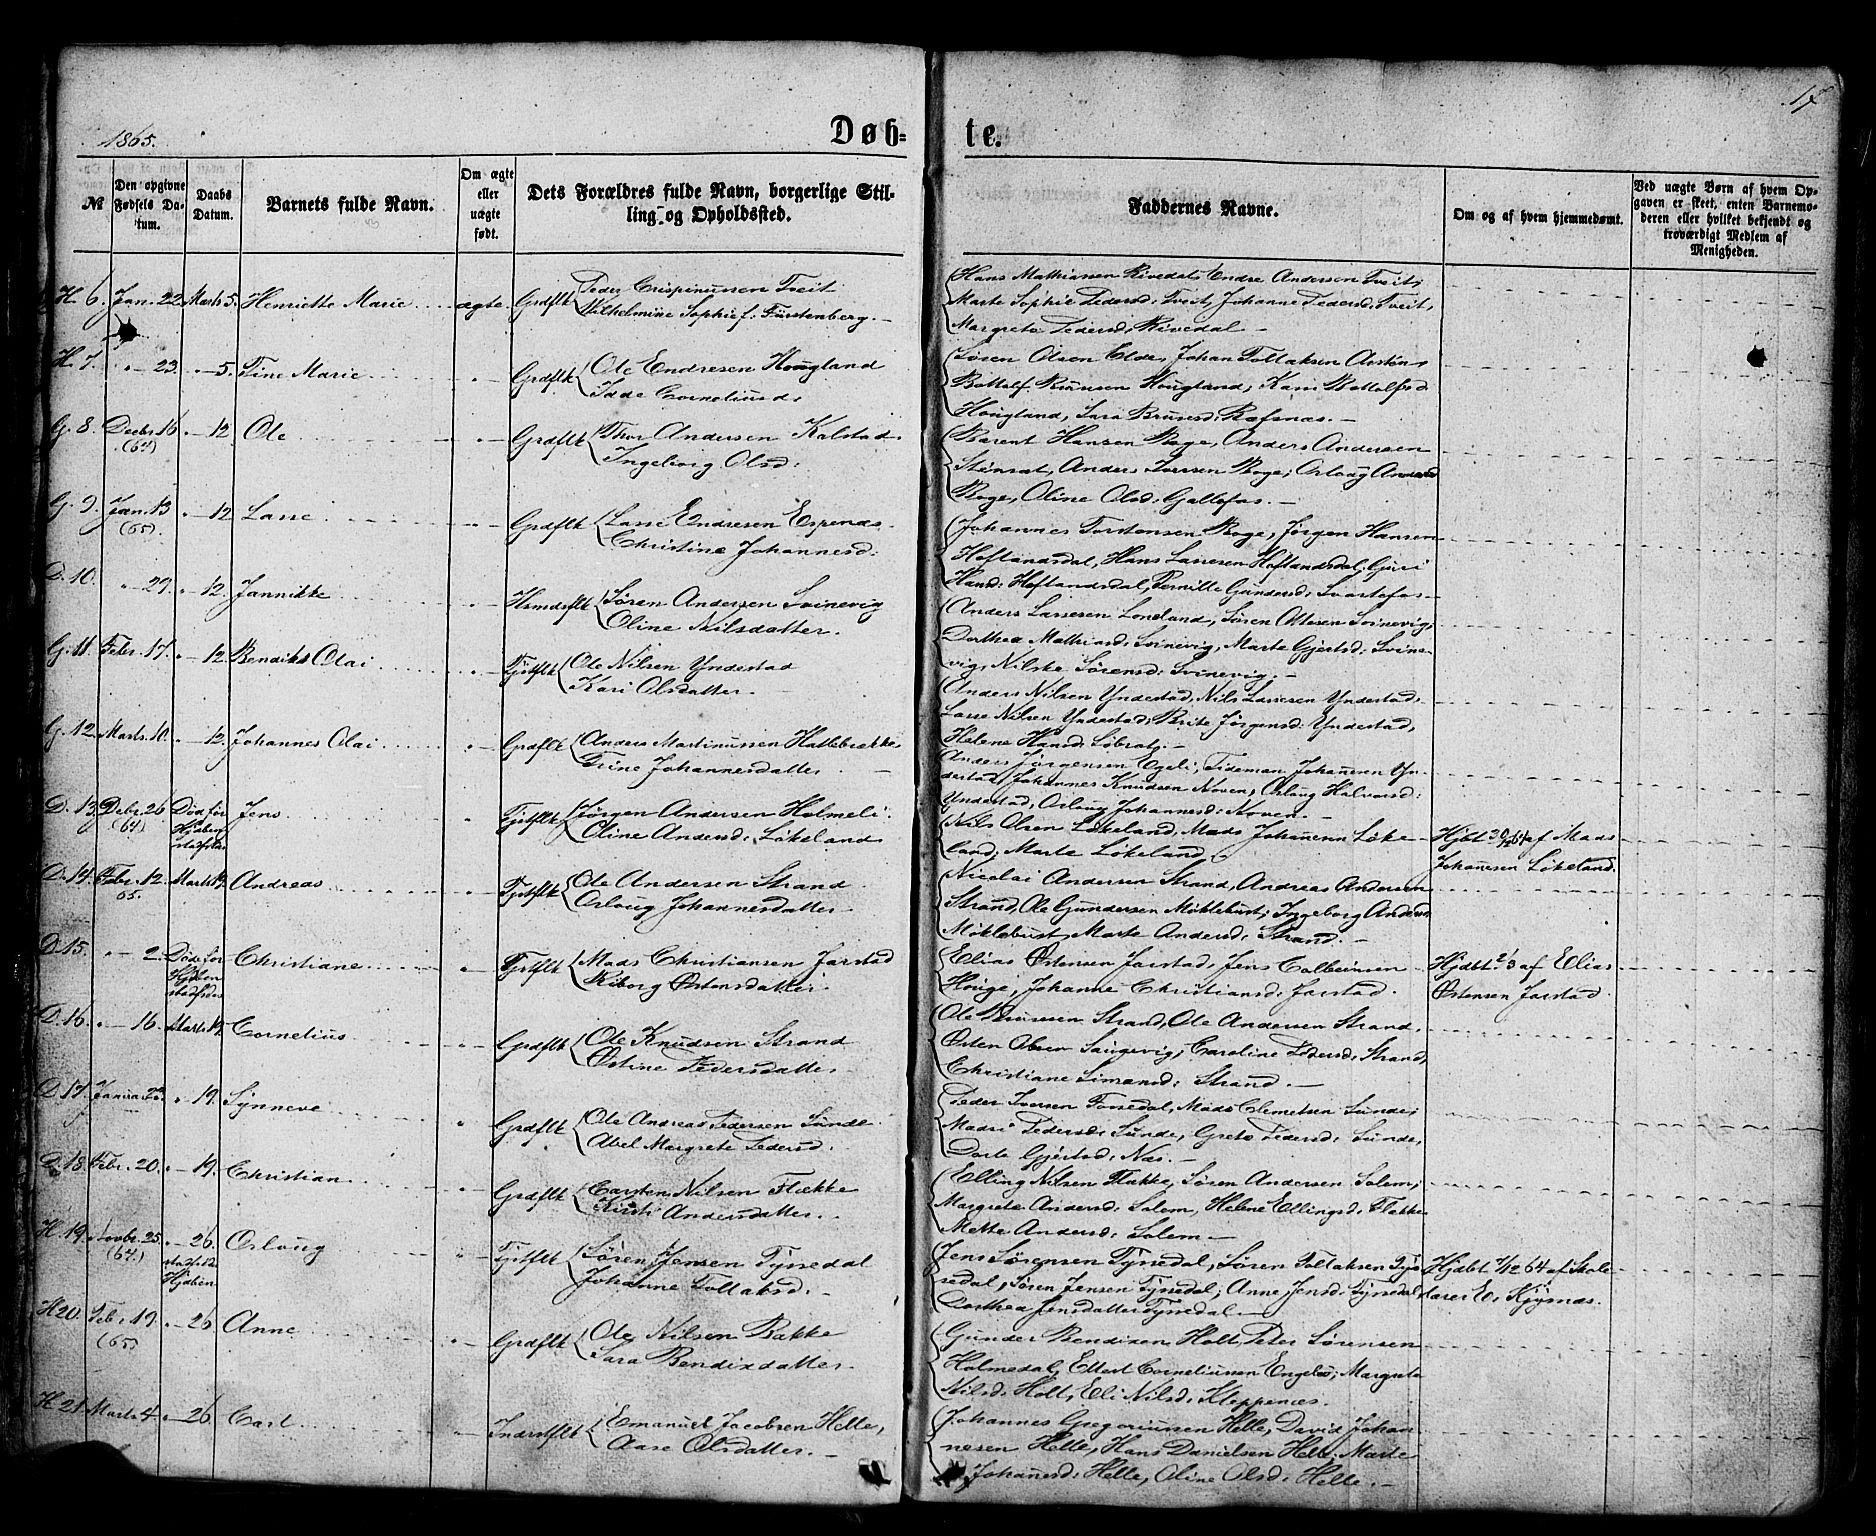 1865.
Døb-
te.
17
№
Den opgivne Fødsels Datum.
Daabs Datum.
Barnets fulde Navn.
Om ægte eller uægte født.
Dets Forældres fulde Navn, borgerlige Stilling og Opholdssted.
Faddernes Navne.
Om og af hvem hjemmedøbt.
Ved uægte Børn af hvem Opgaven er skeet, enten Barnemoderen eller hvilket bekjendt og troværdigt Medlem af Menigheden.
H. 6. Jan. 22. Marts 5. Henriette Marie ægte Grdflk Peder Crispinussen Tveit
Wilhelmine Sophie f. Fürstenberg.
Hans Mathiassen Rivedal, Endre Andersen Tveit,
Marte Sophie Pedersd: Tveit, Johanne Pedersd: Tveit,
Margrete Pedersd: Rivedal
H. 7. " 23. " 5. Tine Marie " Grdflk Ole Endresen Hougland
Idde Corneliusd.
Søren Olsen Elde, Johan Tollaksen
Bottolf Brunsen Hougland, Kari Bottolfsd
Hougland, Sara Brunsd: Refsnæs.
G. 8. Decbr. 16 (64) " 12 Ole " Grdflk Thor Andersen Kalstad
Ingeborg Olsd:
Barent Hansen Boge, Anders Andersen
Stensæt, Anders Iversen Boge, Orloug Andersd
Boge, Oline Olsd: Gallefos.
G. 9. Jan. 13 (65). " 12 Lasse " Grdflk Lasse Endresen Espenæs
Christine Johannesd:
Johannes Torstensen Boge, Jørgen Hansen
Hoftandsdal, Hans Lassesen Hoftandsdal, Guri
Hansd: Hoftandsdal, Pernille Gundersd: Svartefos
D. 10. " 29. " 12. Jannikke " Hsmdsflk Søren Andersen Svinevig
Oline Nilsdatter.
Anders Lassesen Loneland, Søren Ottesen Svinevig,
Dorthea Mathiasd: Svinevig, Marte Gjertsd: Svine-
vig, Nilske Sørensd: Svinevig.
G. 11. Febr. 17. " 12. Bendikt Olai " Tjstflk Ole Nilsen Yndestad
Kari Olsdatter
Anders Nilsen Yndestad, Nils Lassesen Yndestad,
Lasse Nilsen Yndestad, Brite Jørgensd: Yndestad,
Helene Hansd:
G. 12. Marts 10. " 12. Johannes Olai " Grdflk Anders Martinussen Hattebrekke
Trine Johannesdatter
Anders Jørgensen Egeli, Tideman Johannsen Yn-
destad, Johannes Knudsen Noven, Orloug Halvorsd:
Yndestad, Orloug Johannesd: Noven.
D. 13. Debr. 26 (64) Død før Hjdben stadfstes Jens " Tjstflk Jørgen Andersen Holmeli
Oline Andersd: Løkeland
Nils Olsen Løkeland, Mads Johannsn Løke-
land, Marte Løkeland
Hjdbt 30/12 64 af Mads
Johannsen Løkeland.
D. 14. Febr. 12. 65. Marts 19. Andreas " Tjstflk Ole Andersen Strand
Orloug Johannesdatter
Nicolai Andersen Strand, Andreas Andersen
Strand, Ole Gundersen Møklebust, Ingeborg Andersd
Møklebust, Marte Andersd: Strand.
D. 15. " 2. Død før Hjdben stadfstes Christiane " Tjstflk Mads Christiansen Jarstad
Riborg Østensdatter.
Elias Østensen Jarstad, Jens Colbeinsen
Houge, Johanne Christiansd: Jarstad.
Hjdbt 2/3 af Elias
Østensen Jarstad.
D. 16. " 16. Marts 19. Cornelius " Grdflk Ole Knudsen Strand
Østine Pedersdatter
Ole Brunsen Strand, Ole Andersen Strand,
Østen Olsen Saugevig, Caroline Pedersd: Strand,
Christiane Simonsd: Strand.
D. 17. " 19. Synneve " Grdflk Ole Andreas Pedersen Sunde
Abel Margrete Pedersd.
Peder Iversen Fossedal, Mads Clemetsen Sunde,
Madri Pedersd: Sunde, Grete Pedersd: Sunde,
Dorte Gjertsd: Næs.
D. 18. Febr. 20. " 19. Christian " Grdflk Carsten Nilsen Flekke
Kirsti Andersdatter.
Elling Nilsen Flekke, Søren Andersen Solem,
Margrete Andersd: Solem, Helene Ellingsd: Flekke
Mette Andersd: Solem
H. 19. Novbr. 25. (64.) " 26. stadfstede Hjdben Orloug " Tjstflk Søren Jensen Tyssedal
Johanne Tollaksd.
Jens Sørensen Tyssedal, Søren Tollaksen Tys
sedal, Søren Jensen Tyssedal, Anne Jensd: Tyssedal
Dorthea Jensdatter Tyssedal.
Hjdbt 7/12 64 af Skole
larer E. Kyrnæs.
H. 20. Febr. 19. (65) " 26. Anne " Grdflk Ole Nilsen Bakke
Sara Bendixdatter
Gunder Bendixen Holt, Peter Sørensen
Holmedal, Ellert Corneliussen Engebø, Margrete
Nilsd: Holt, Eli Nilsd: Kleppenes.
H. 21. Marts 4. " 26. Carl " Indrstflk Emanuel Jacobsen Helle,
Aase Olsdatter.
Johannes Gregoriussen Helle, David Johan-
nesen Helle, Hans Danielsen Helle, Marte
Johannsd: Helle, Oline Olsd: Helle.